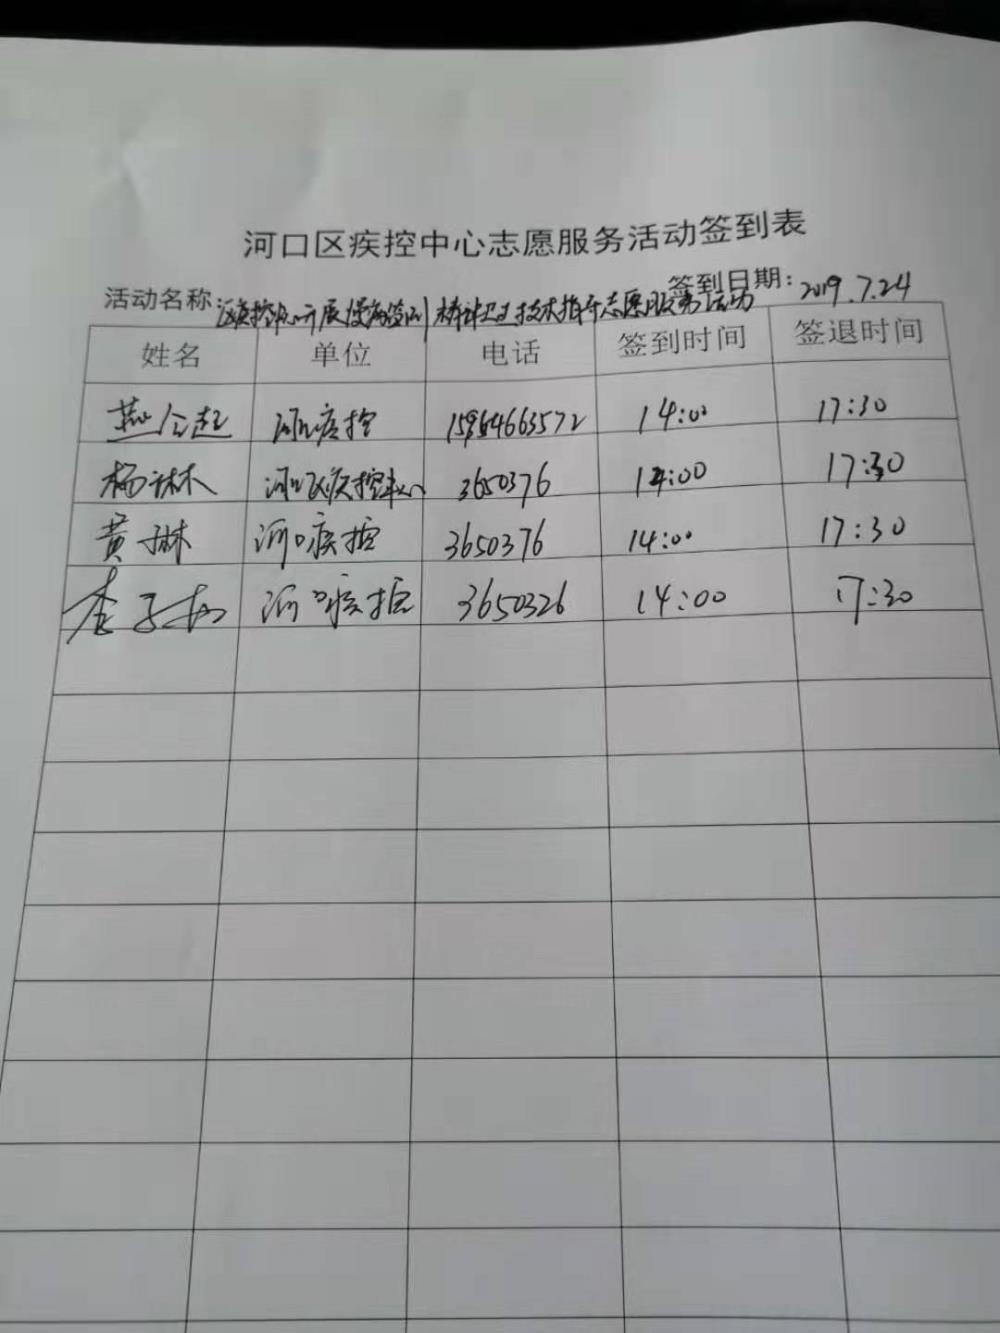 河口区疾控中心志愿服务活动签到表
活动名称 区疾控中心开展慢病签约精神卫生技术指导志愿服务活动 签到日期：2019.7.24
姓名 单位 电话 签到时间 签退时间
河口疾控 15964663572 14:00 17:30
杨林 河口区疾控中心 3650376 14:00 17:30
黄琳 河口疾控 3650376 14:00 17:30
李 河口疾控 3650326 14:00 17:30